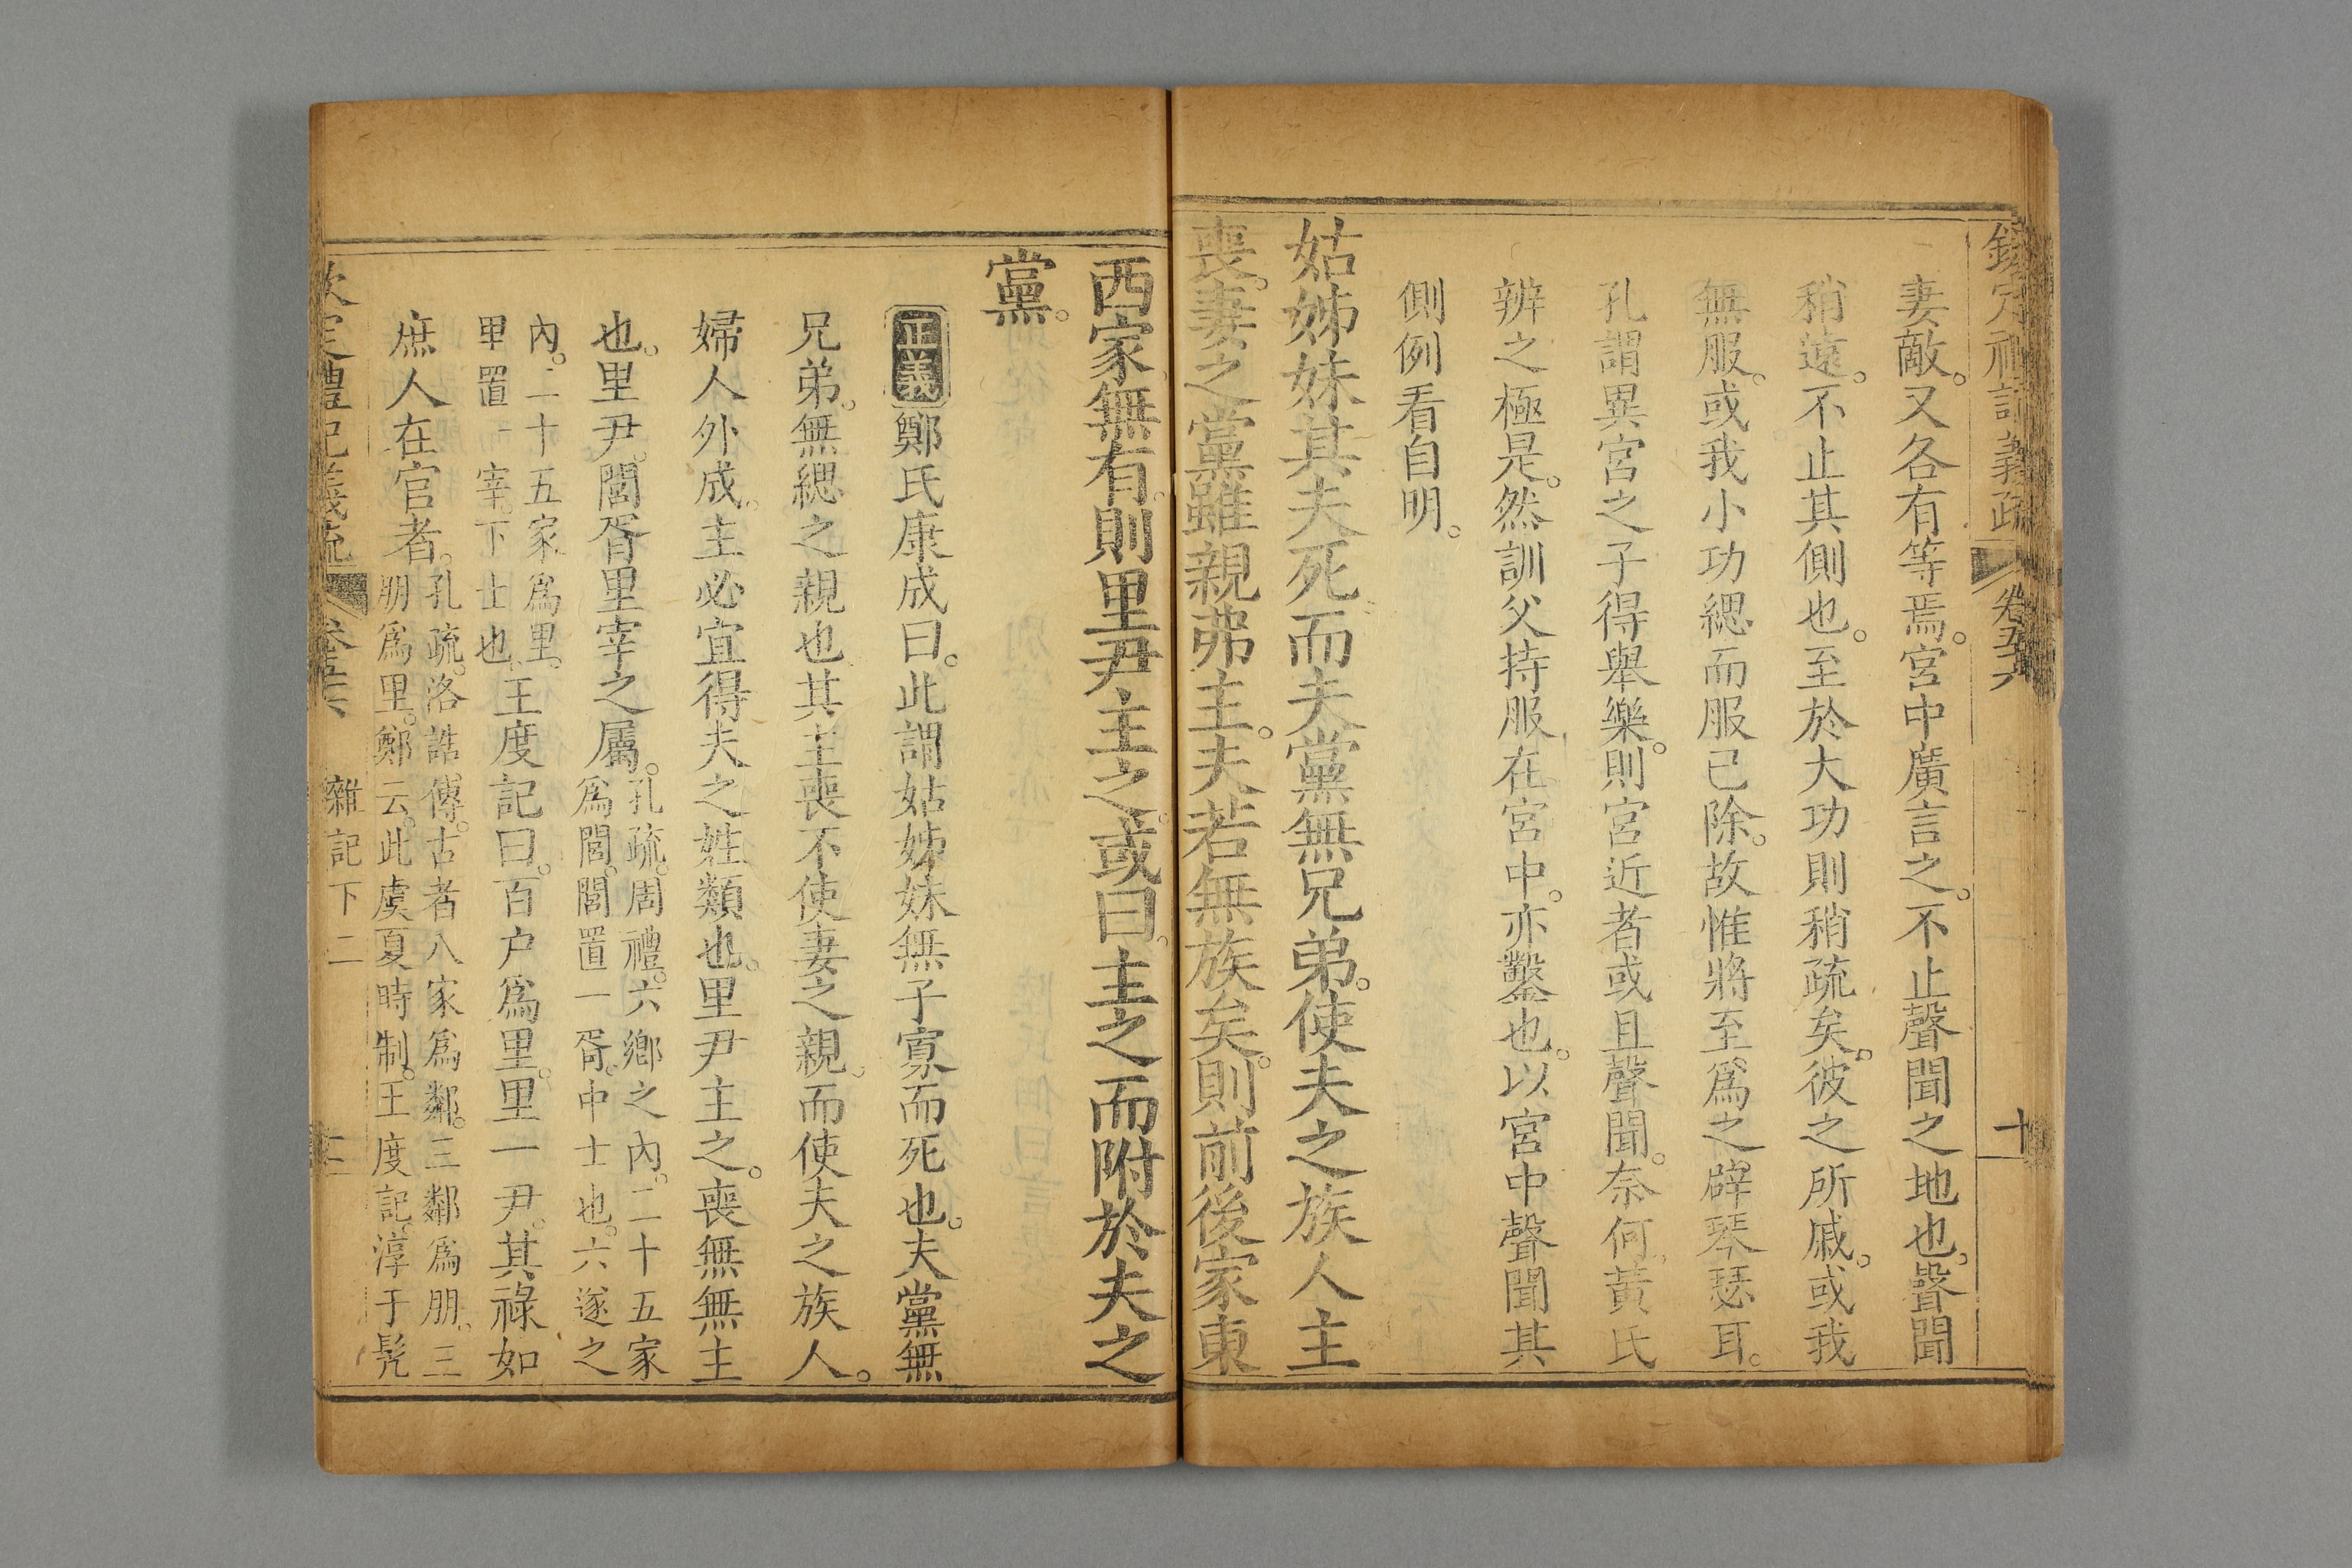 欽定禮記義疏 卷五十六 十
妻敵。又各有等焉。宮中廣言之。不止聲聞之地也。聲聞
稍遠。不止其側也。至於大功則稍疏矣。彼之所戚。或我
無服。或我小功緦而服已除。故惟將至。爲之辟琴瑟耳。
孔謂異宮之子得舉樂。則宮近者或且聲聞。奈何。黃氏
辨之極是。然訓父持服在宮中。亦鑿也。以宮中聲聞其
側例看自明。
姑姊妹其夫死而夫黨無兄弟。使夫之族人主
喪。妻之黨雖親弗主。夫若無族矣。則前後家東
西家無有。則里尹主之。或曰。主之而附於夫之
黨。
正義 鄭氏康成曰。此謂姑姊妹無子寡而死也。夫黨無
兄弟。無緦之親也。其主喪不使妻之親。而使夫之族人。
婦人外成。主必宜得夫之姓類也。里尹主之。喪無無主
也。里尹。閭胥里宰之屬。孔疏。周禮。六鄉之內。二十五家
爲閭。閭置一胥。中士也。六遂之
內。二十五家爲里。
里置一宰。下士也。王度記曰。百户爲里。里一尹。其祿如
庶人在官者。孔疏。洛誥傳。古者八家爲鄰。三鄰爲朋。三
朋爲里。鄭云。此虞夏時制。王度記。淳于髡
欽定禮記義疏 卷五十六 雜記下二